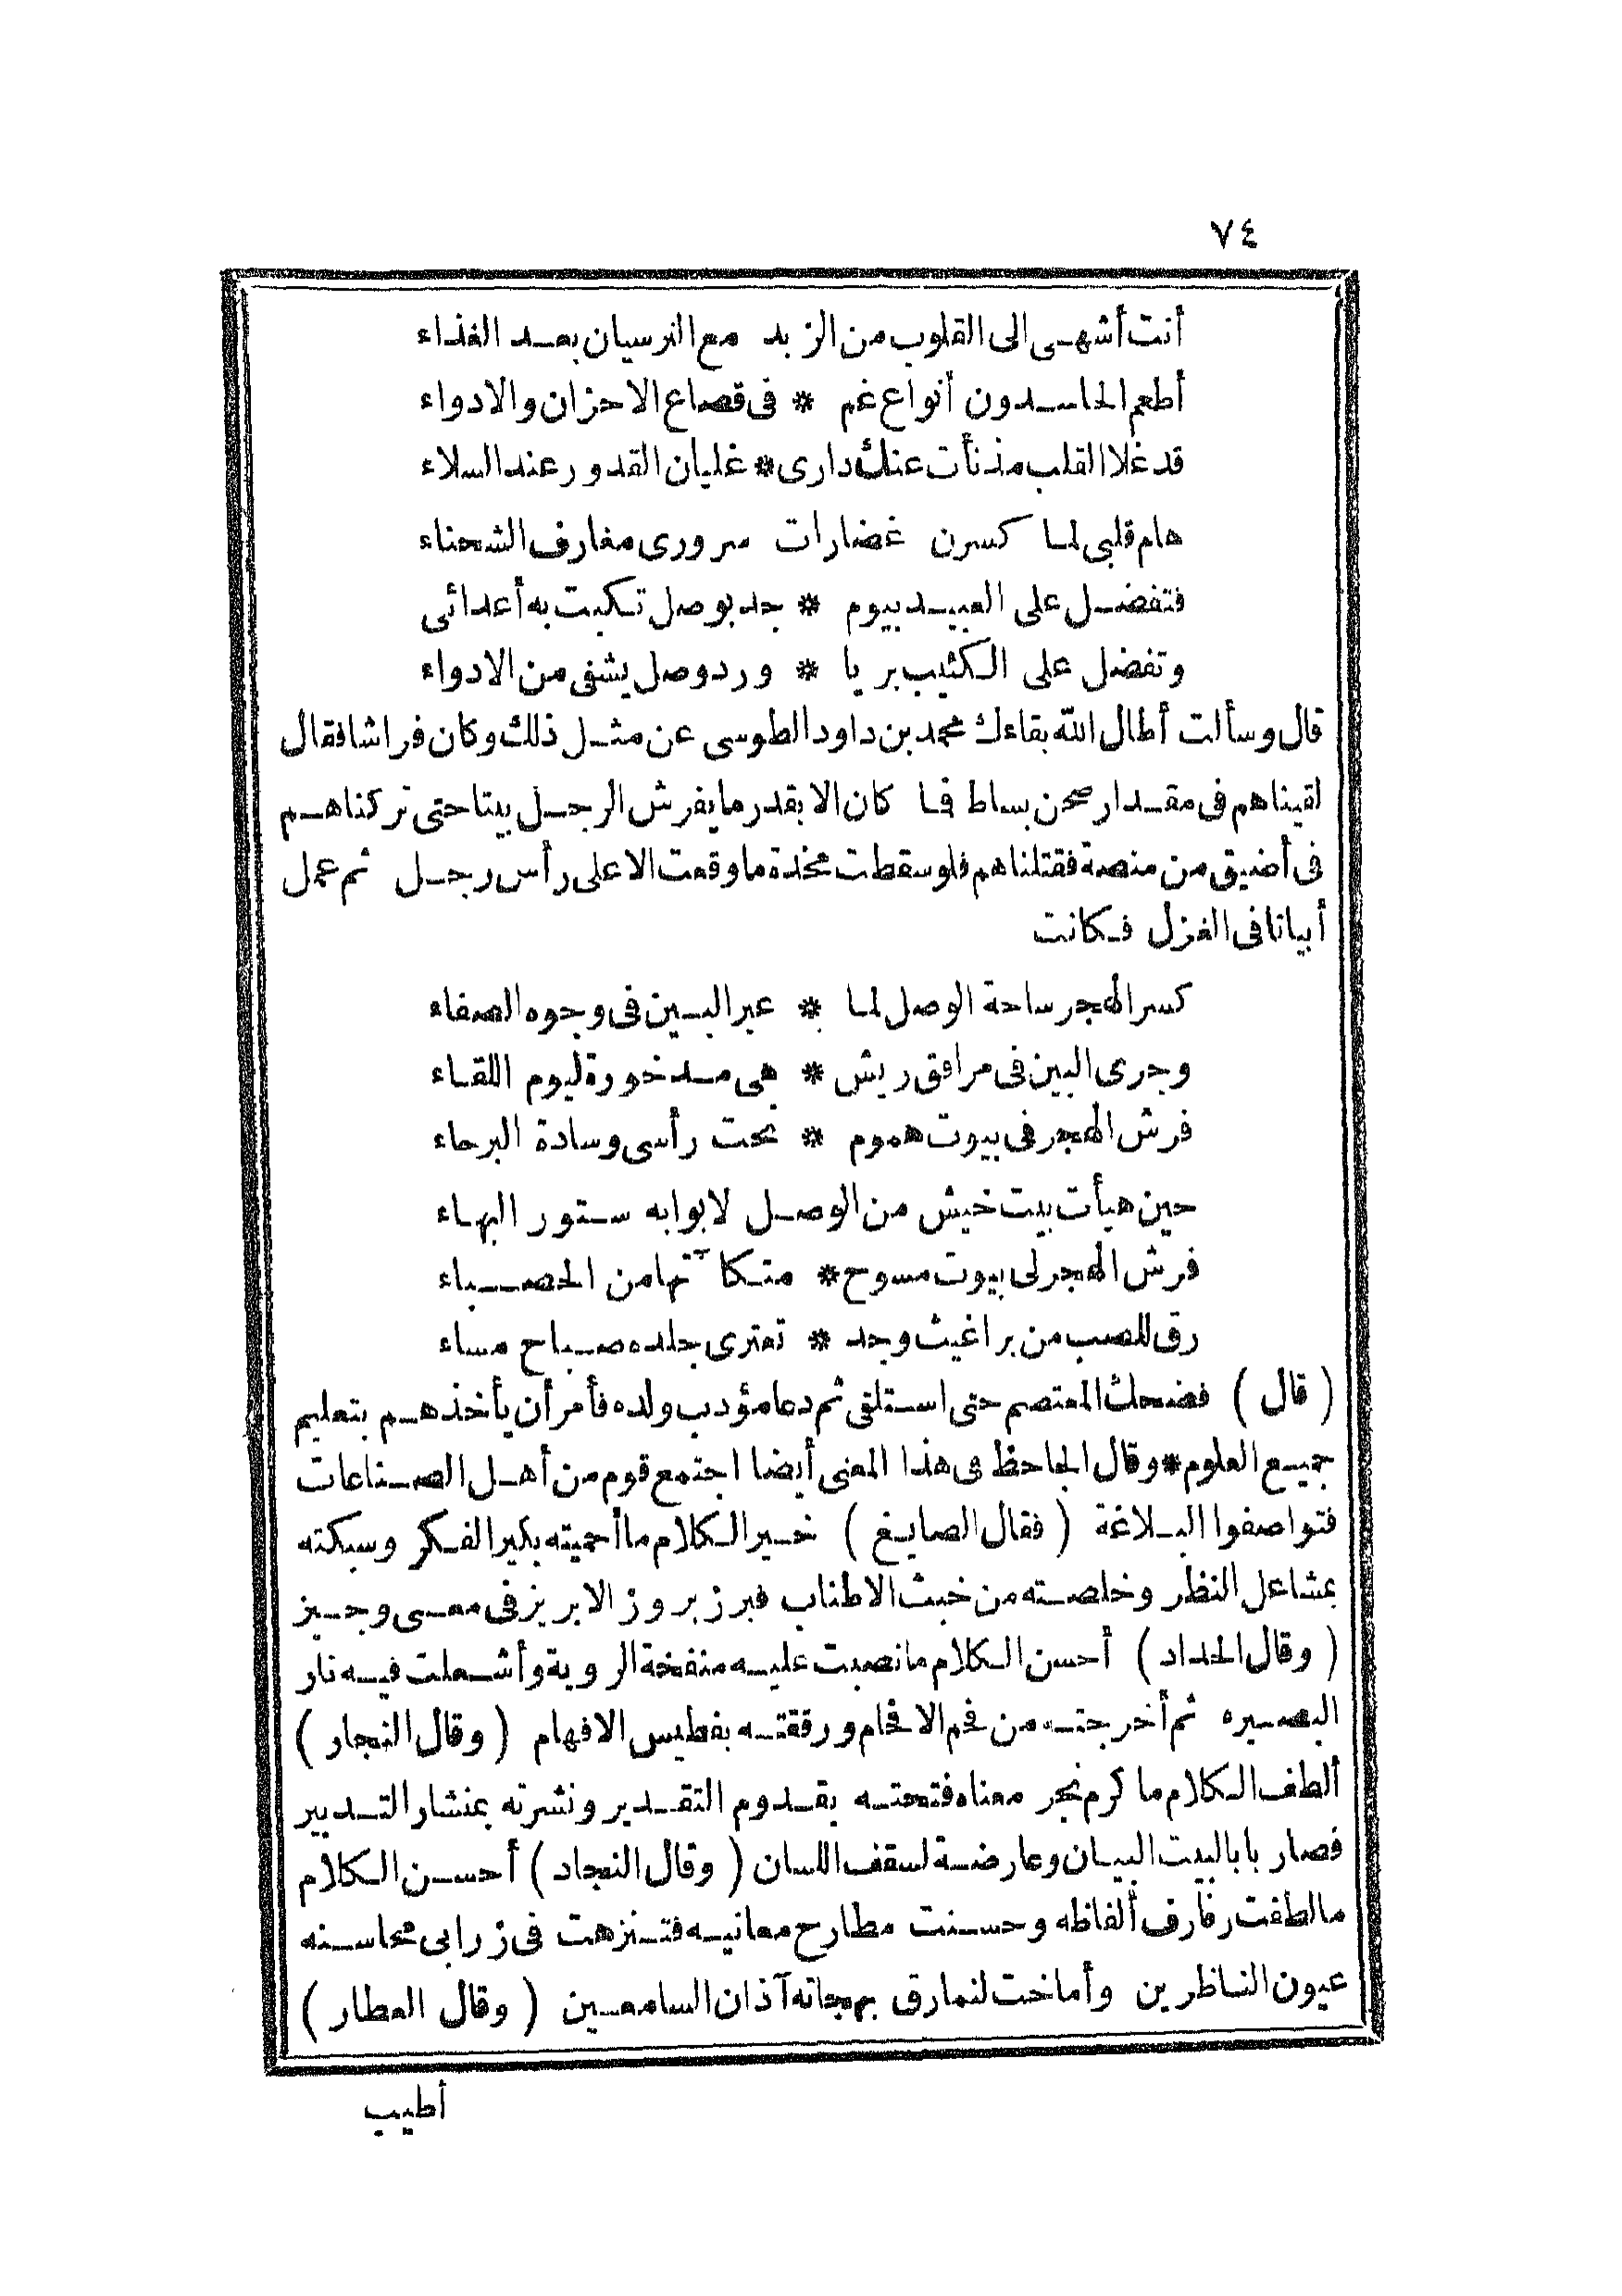 ٧٤
أنت أشهى الى القلوب من الزبد مع النرسيان بعد الغذاء
أطعم الحاسدون أنواع غم * فى قصاع الاحزان والادواء
قد غلا القلب مذ نأت عنك دارى * غليان القدور عند السلاء
هام قلبى لما كسرن غضارات سرورى مغارف الشحناء
فتفضل على العبيد بيوم * جد بوصل تكبت به أعدائى
وتفضل على الكئيب بريا * ورد وصل يشفى من الادواء
قال وسألت أطال الله بقاءك محمد بن داود الطوسى عن مثل ذلك وكان فراشا فقال
لقيناهم فى مقدار صحن بساط فما كان الا بقدر ما يفرش الرجل بيتا حتى تركناهم
فى أضيق من منصة فقتلناهم فلو سقطت مخدة ما وقعت الا على رأس رجل ثم عمل
أبياتا فى الغزل فكانت
كسر الهجر ساحة الوصل لما * عبر البين فى وجوه الصفاء
وجرى البين فى مرافق ريش * هى مدخورة ليوم اللقاء
فرش الهجر فى بيوت هموم * تحت رأسى وسادة البرحاء
حين هيأت بيت خيش من الوصل لابوابه ستور البهاء
فرش الهجر لى بيوت مسوح * متكآتها من الحصباء
رق للصب من براغيث وجد * تعترى جلده صباح مساء
(قال) فضحك المعتصم حتى استلقى ثم دعا مؤدب ولده فأمر أن يأخذهم بتعليم
جميع العلوم * وقال الجاحظ فى هذا المعنى أيضا اجتمع قوم من أهل الصناعات
فتواصفوا البلاغة (فقال الصايغ) خير الكلام ما أحميته بكير الفكر وسبكته
بمشاعل النظر وخلصته من خبث الاطناب فبرز بروز الابريز فى معنى وجيز
(وقال الحداد) أحسن الكلام ما نصبت عليه منفخة الروية وأشعلت فيه نار
البصيره ثم أخرجته من فحم الافحام ورققته بفطيس الافهام (وقال النجار)
ألطف الكلام ما كرم نجر معناه فتحته بقدوم التقدير ونشرته بمنشار التدبير
فصار بابا لبيت البيان وعارضة لسقف اللسان (وقال النجاد) أحسن الكلام
ما لطفت رفارف ألفاظه وحسنت مطارح معانيه فتنزهت فى زرابى محاسنه
عيون الناظرين وأماخت لنمارق بهجاته آذان السامعين (وقال العطار)
أطيب